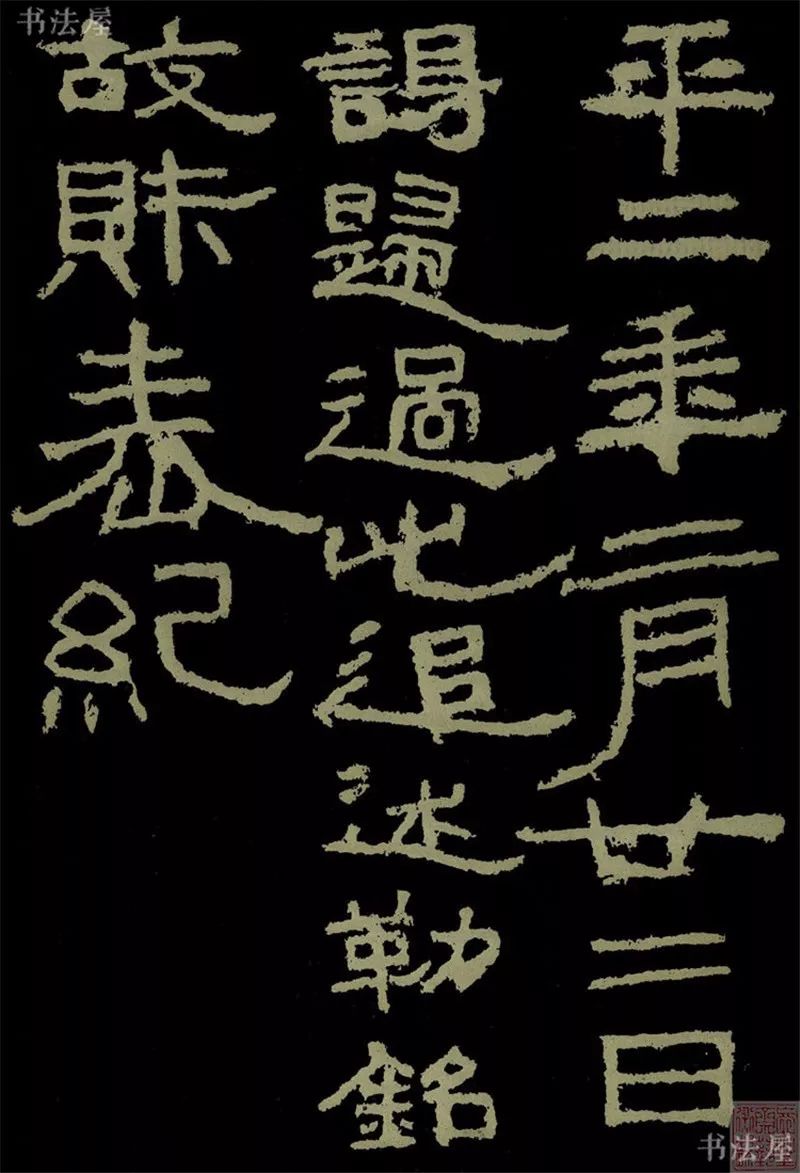 平二年二月廿二日
謁歸過此追述勒銘
故財表紀
书法屋
书法屋